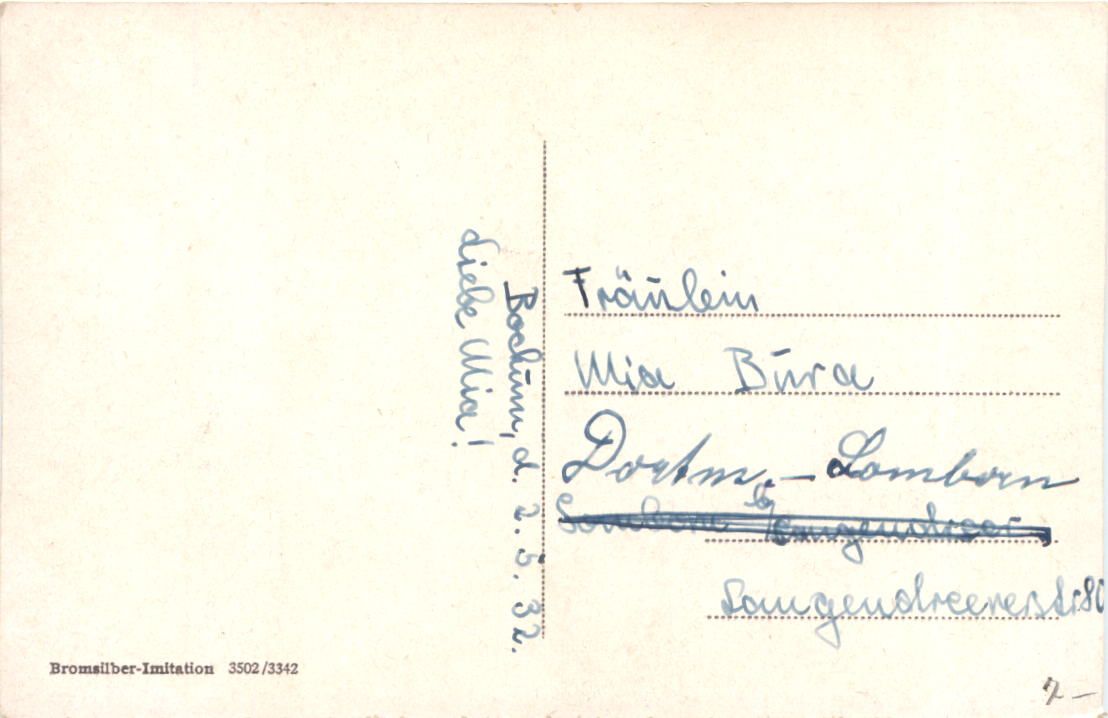 Bochum, d. 2. 5. 32.
Liebe Mia!
Fräulein
Mia Bura
Dortm. - Somborn
Somborn b/ Langendreer
Langendreererstr 80
Bromsilber-Imitation 3502/3342
7 -